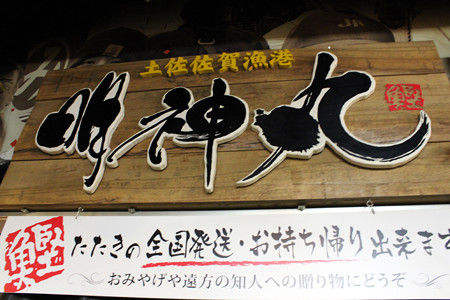 土佐佐賀漁港
明神丸
鰹
鰹
たたきの全国発送・お持ち帰り出来ます
おみやげや遠方の知人への贈り物にどうぞ